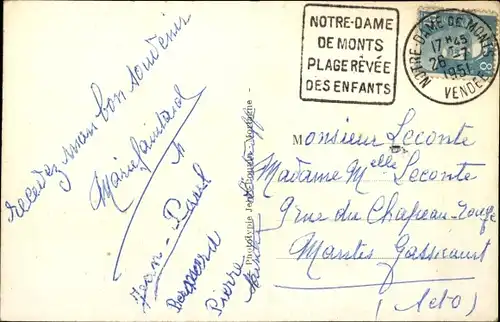 NOTRE-DAME
DE MONTS
PLAGE RÊVÉE
DES ENFANTS
NOTRE-DAME DE MONTS
17 H 45
26
1951
VENDEE
recevez mon bon souvenir
Jean-Paul
Bernard
Pierre
Phototypie
M
Monsieur Leconte
Madame Melle Leconte
rue du Chapeau-Rouge
Mantes Gassicourt
(S et O)